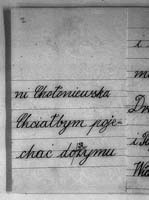 ni Chołoniewska
Chciałbym poje-
chać do Rzymu
i
m
Dr
i Pa
Wa